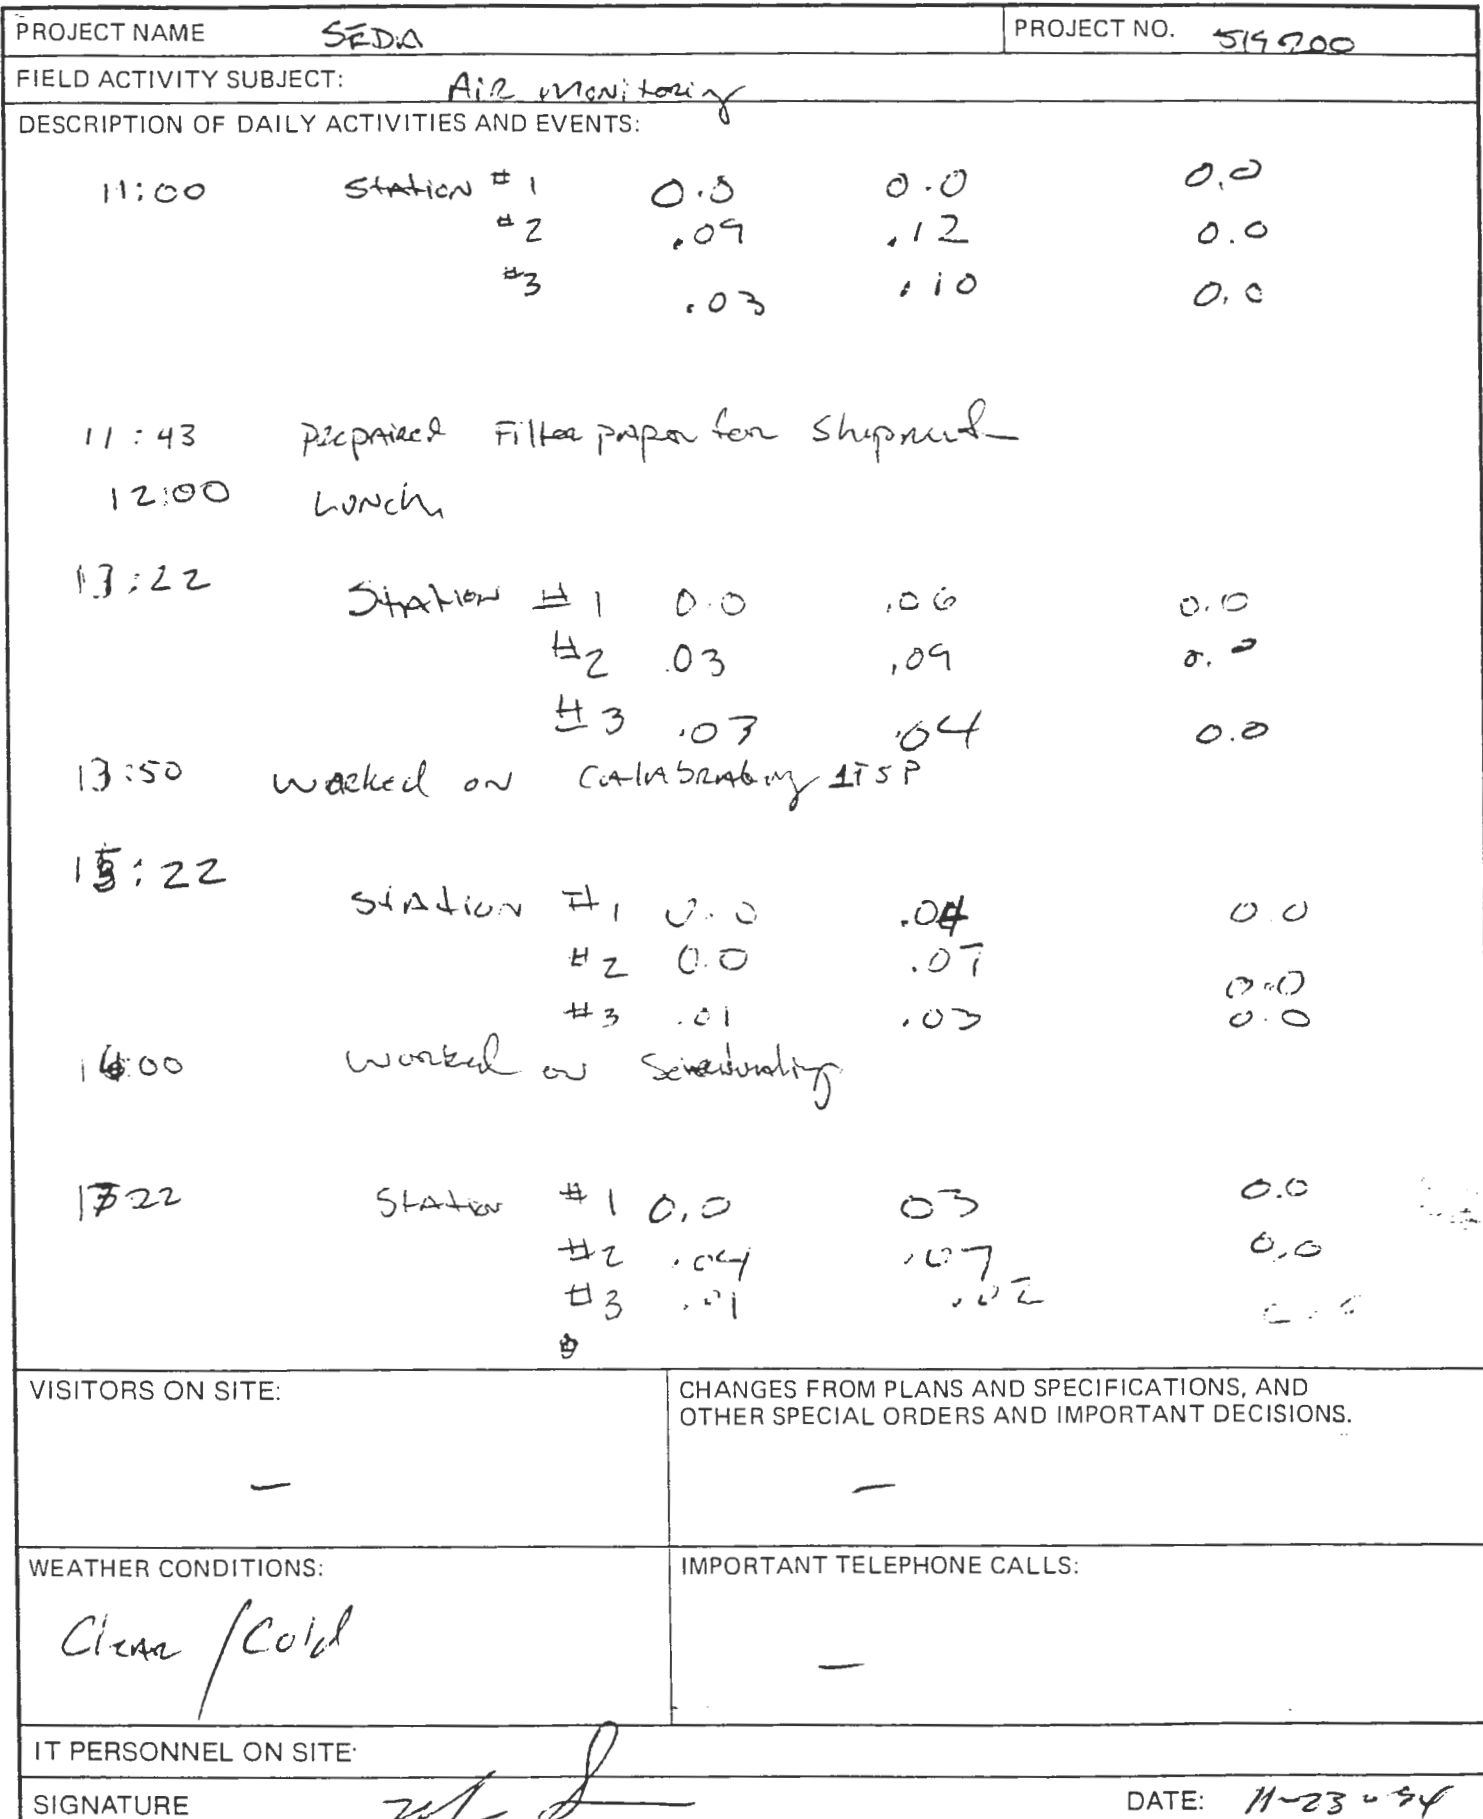 PROJECT NAME SEDA PROJECT NO. 519200
FIELD ACTIVITY SUBJECT: Air Monitoring
DESCRIPTION OF DAILY ACTIVITIES AND EVENTS:
11:00 Station #1 0.0 0.0 0.0
#2 .09 .12 0.0
#3 .03 .10 0.0
11:43 Prepaired Filter paper for Shipment
12:00 Lunch
13:22 Station #1 0.0 .06 0.0
#2 .03 .09 0.0
#3 .03 .04 0.0
13:50 Worked on Calabrating TSP
15:22 Station #1 0.0 .04 0.0
#2 0.0 .07 0.0
#3 .01 .03 0.0
16:00 Worked on
1722 Station #1 0.0 03 0.0
#2 .04 .07 0.0
#3 .01 .02
VISITORS ON SITE: CHANGES FROM PLANS AND SPECIFICATIONS, AND
OTHER SPECIAL ORDERS AND IMPORTANT DECISIONS.
— —
WEATHER CONDITIONS: IMPORTANT TELEPHONE CALLS:
Clear / Cold —
IT PERSONNEL ON SITE:
SIGNATURE DATE: 11-23-94